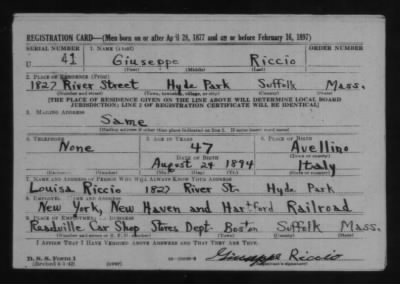 REGISTRATION CARD—(Men born on or after April 28, 1877 and on or before February 16, 1897)
SERIAL NUMBER 1. NAME (Print) ORDER NUMBER
U 41 Giuseppe Riccio
(First) (Middle) (Last)
2. PLACE OF RESIDENCE (Print)
1827 River Street Hyde Park Suffolk Mass.
(Number and street) (Town, township, village, or city) (County) (State)
[THE PLACE OF RESIDENCE GIVEN ON THE LINE ABOVE WILL DETERMINE LOCAL BOARD
JURISDICTION; LINE 2 OF REGISTRATION CERTIFICATE WILL BE IDENTICAL]
3. MAILING ADDRESS
Same
[Mailing address if other than place indicated on line 2. If same insert word same]
4. TELEPHONE 5. AGE IN YEARS 6. PLACE OF BIRTH
None 47 Avellino
DATE OF BIRTH (Town or county)
August 24 1894 Italy
(Mo.) (Day) (Yr.) (State or country)
7. NAME AND ADDRESS OF PERSON WHO WILL ALWAYS KNOW YOUR ADDRESS
Louisa Riccio 1827 River St. Hyde Park
8. EMPLOYER'S NAME AND ADDRESS
New York, New Haven and Hartford Railroad
9. PLACE OF EMPLOYMENT OR BUSINESS
Readville Car Shop Stores Dept. Boston Suffolk Mass.
(Number and street or R. F. D. number) (Town) (County) (State)
I AFFIRM THAT I HAVE VERIFIED ABOVE ANSWERS AND THAT THEY ARE TRUE.
D. S. S. Form 1
(Revised 4-1-42) (over) Giuseppe Riccio